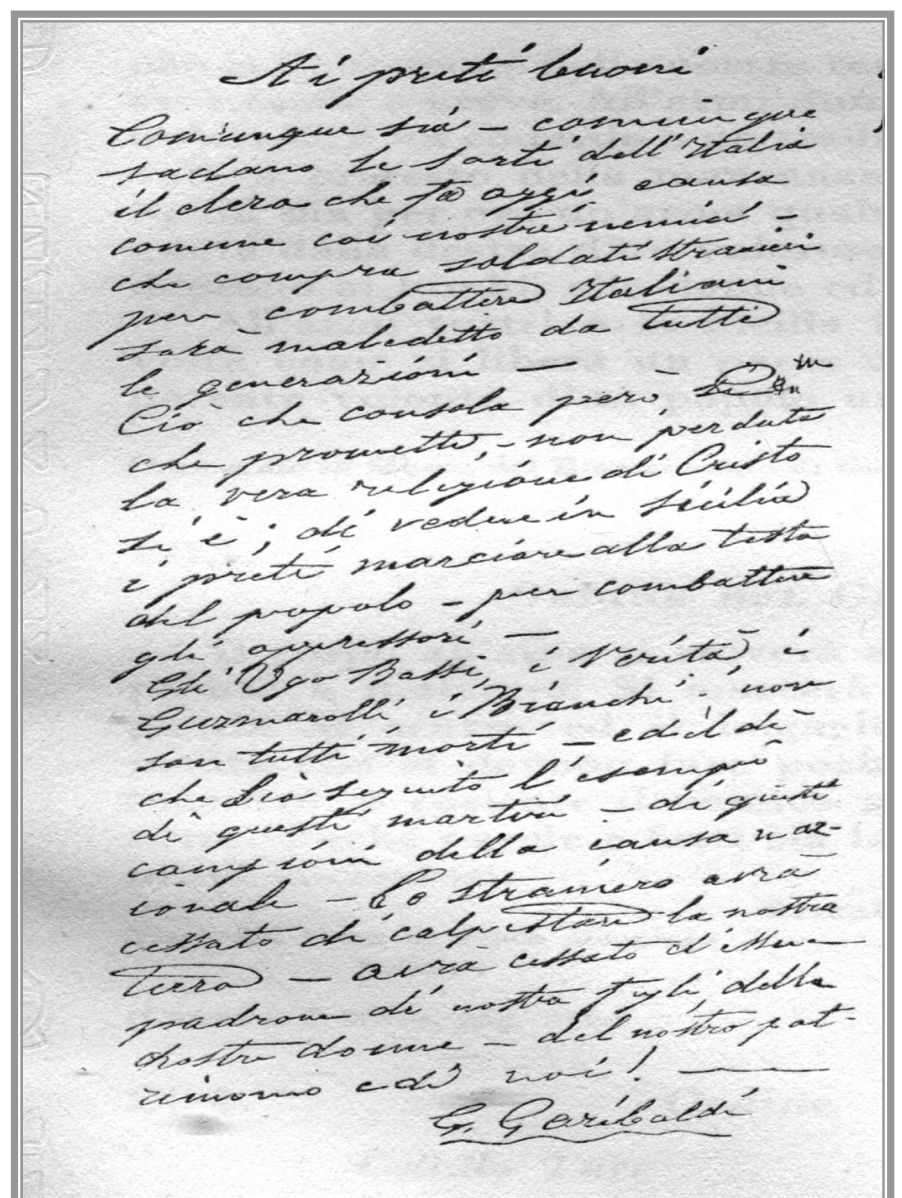 Ai preti buoni
Comunque sia – comunque
vadano le sorti dell'Italia
il clero che fa oggi causa
comune coi nostri nemici –
che compra soldati stranieri
per combattere Italiani
sarà maledetto da tutti
le generazioni –
Ciò che consola però,
che promette, – non perduta
la vera religione di Cristo
si è, di vedere in Sicilia
i preti marciare alla testa
del popolo – per combattere
gli oppressori –
Gli Ugo Bassi, i Verità, i
Guzmarolli i Bianchi, non
son tutti morti – ed il dì
che sia seguito l'esempio
di questi martiri – di questi
campioni della causa naz-
ionale – Lo straniero avrà
cessato di calpestare la nostra
terra – avrà cessato d'essere
padrone di nostri figli, delle
nostre donne – del nostro pat-
rimonio e di noi! –
G. Garibaldi